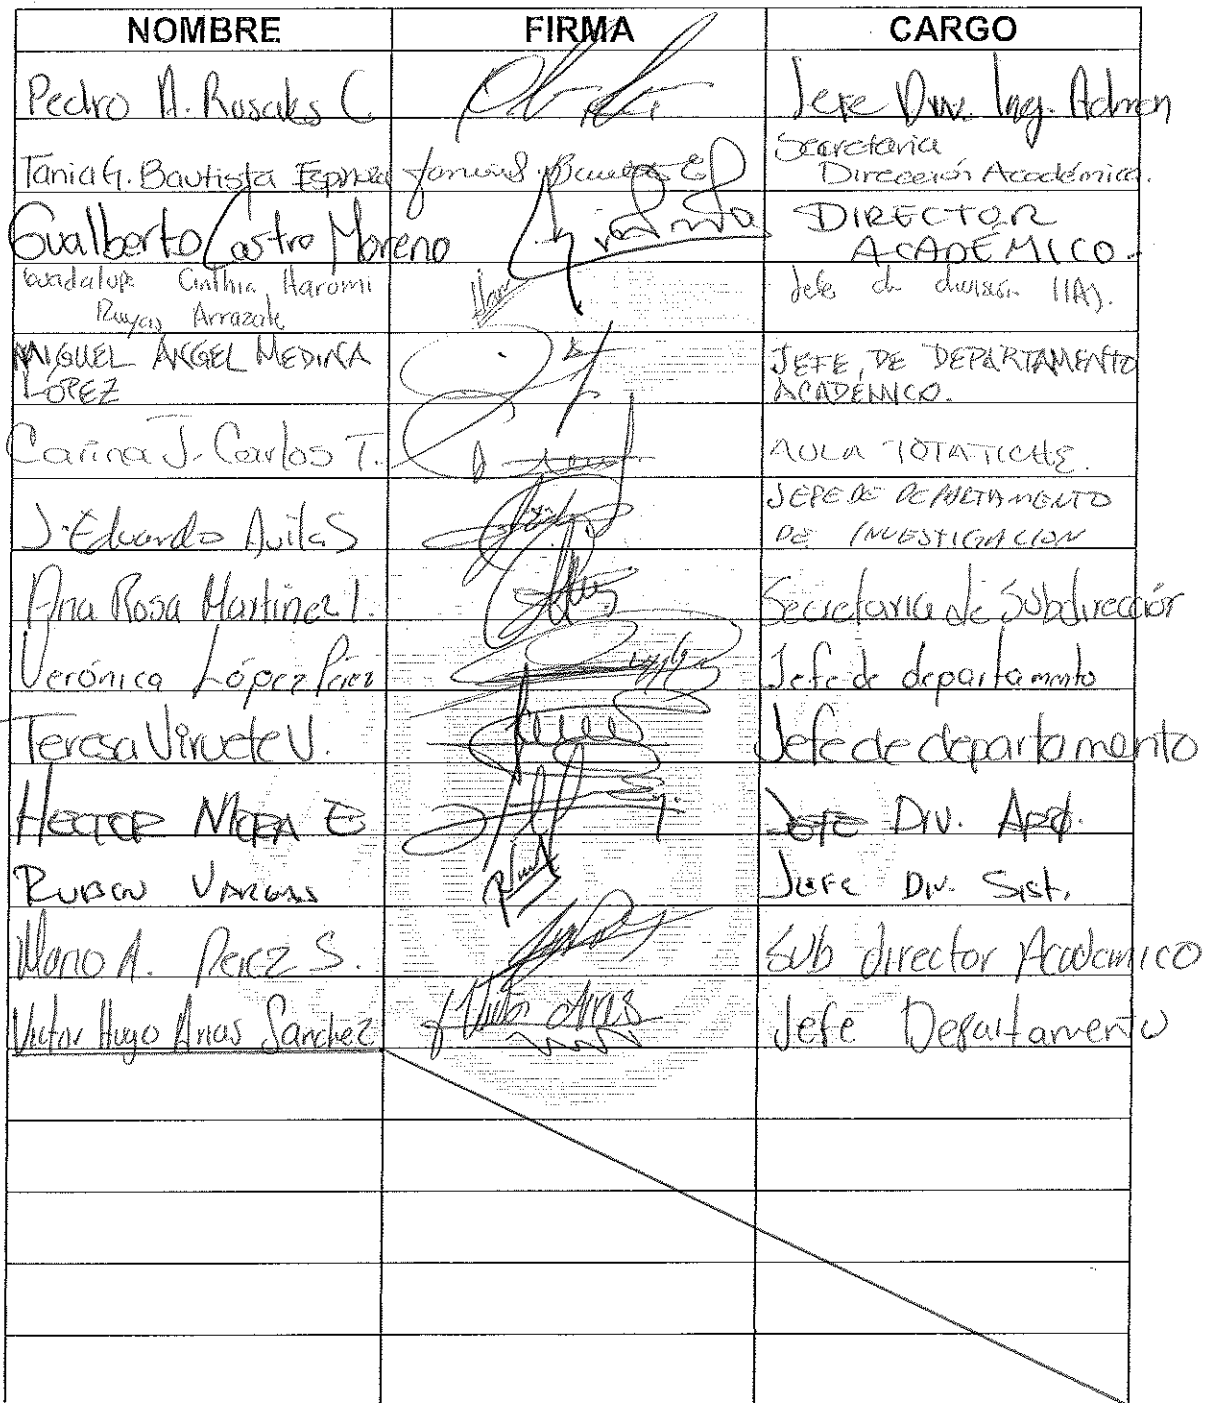 NOMBRE FIRMA CARGO
Pedro A. Rosales C. Jefe Div. Ing. Admon
Tania G. Bautista Espinoza Secretaria
Dirección Académica.
Gualberto Castro Moreno DIRECTOR
ACADÉMICO.
Guadalupe Cinthia Harumi Jefe de división IIAS.
Arrazola
MIGUEL ANGEL MEDINA JEFE DE DEPARTAMENTO
LÓPEZ ACADÉMICO.
Carina J. Carlos T. AULA TOTATICHE.
J. Eduardo Avila S JEFE DE DEPARTAMENTO
DE INVESTIGACION
Ana Rosa Martinez I. Secretaria de Subdirección
Verónica López Pérez Jefe de departamento
Teresa Viruete V. Jefe de departamento
HECTOR MORA E Jefe DIV. ARQ.
RUBEN VARGAS JEFE DIV. Sist.
Mario A. Perez S. Sub director Academico
Victor Hugo Arias Sanchez Victor Arias Jefe Departamento